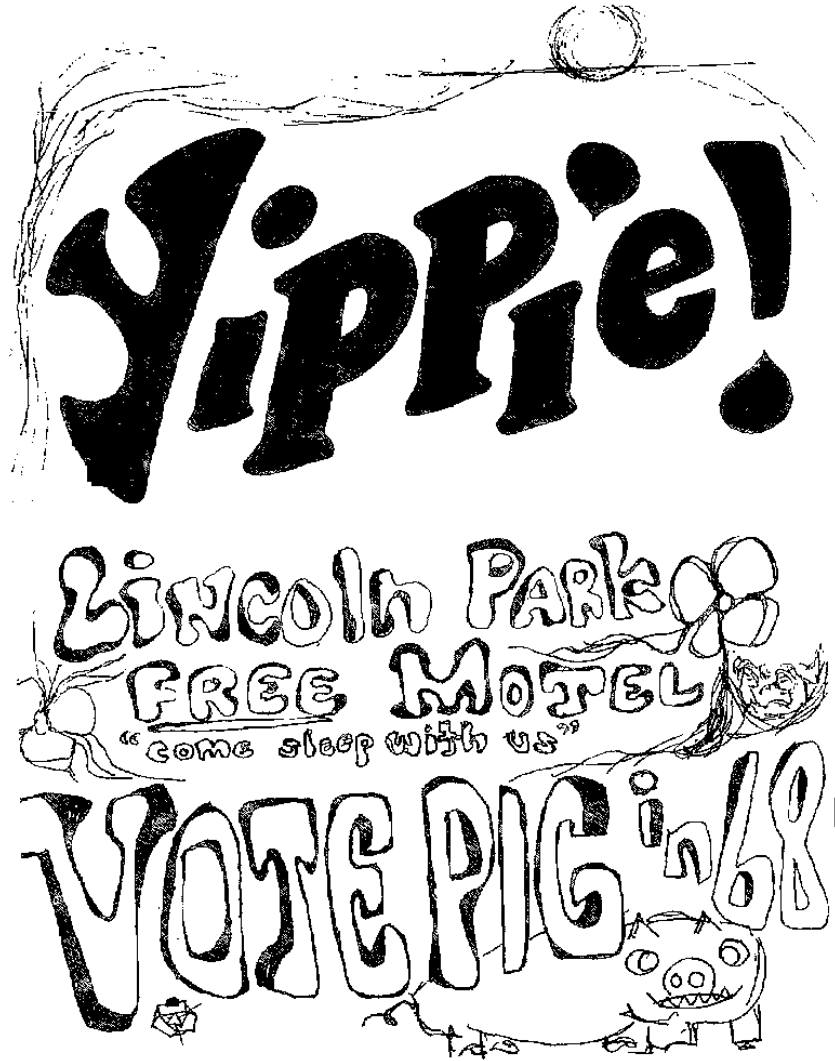 Yippie!
LiNCOln PARK
FREE MOTEL
"come sleep with us"
VOTE PIG in 68